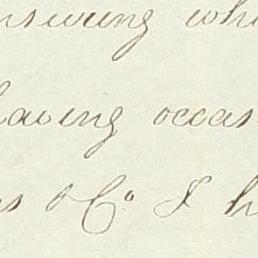 nswering whi
having occas
s & Co. I h